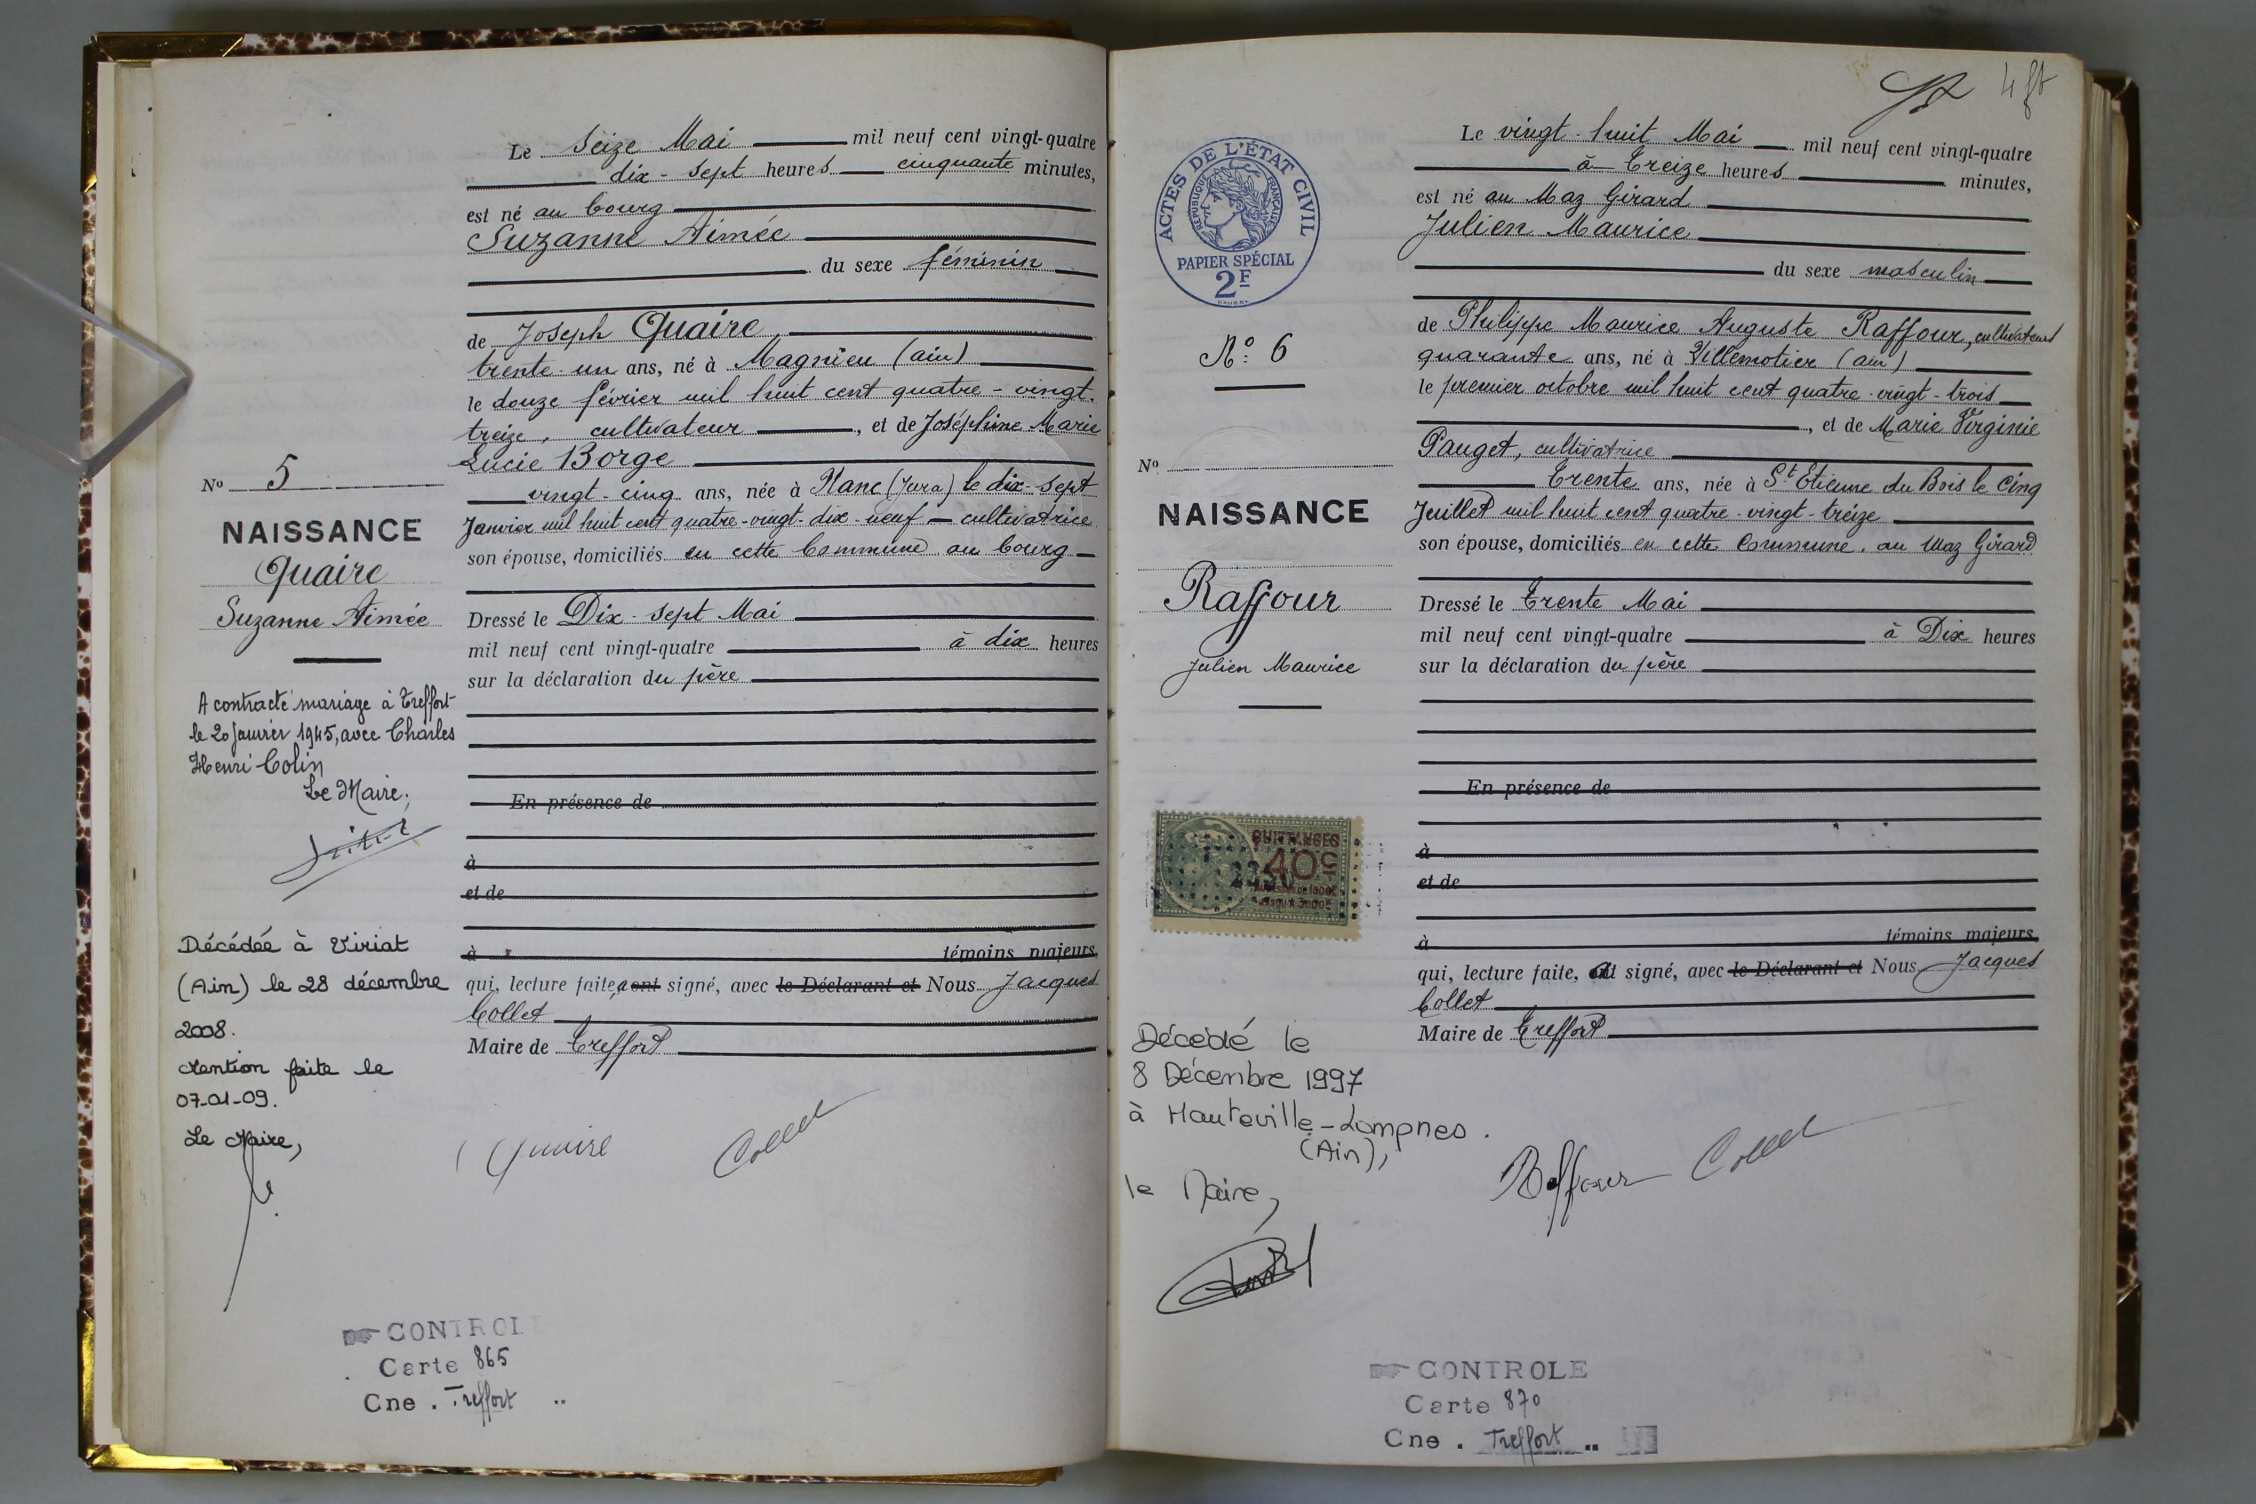 Le seize Mai mil neuf cent vingt-quatre
dix-sept heures cinquante minutes,
est né au bourg
Suzanne Aimée
du sexe féminin
de Joseph Quaire,
trente-un ans, né à Magnieu (ain)
le douze février mil huit cent quatre-vingt-
treize, cultivateur, et de Joséphine Marie
Lucie Borge
vingt-cinq ans, née à Nanc (Jura) le dix-sept
Janvier mil huit cent quatre-vingt-dix-neuf – cultivatrice
son épouse, domiciliés en cette Commune au bourg
Dressé le Dix-sept Mai
mil neuf cent vingt-quatre à dix heures
sur la déclaration du père
En présence de
à
et de
à témoins majeurs,
qui, lecture faite, a ont signé, avec le Déclarant et Nous Jacques
Collet
Maire de Treffort
Quaire Collet
No 5
NAISSANCE
Quaire
Suzanne Aimée
A contracté mariage à Treffort
le 20 Janvier 1945, avec Charles
Henri Colin
Le Maire,
Décédée à Viriat
(Ain) le 28 décembre
2008.
Mention faite le
07-01-09.
Le Maire,
CONTROL
Carte 865
Cne . Treffort ..
4
Le vingt-huit Mai mil neuf cent vingt-quatre
à Treize heures minutes,
est né au Maz Girard
Julien Maurice
du sexe masculin
de Philippe Maurice Auguste Raffour, cultivateur
quarante ans, né à Villemotier (ain)
le premier octobre mil huit cent quatre-vingt-trois
, et de Marie Virginie
Pauget, cultivatrice
Trente ans, née à St Etienne du Bois le Cinq
Juillet mil huit cent quatre-vingt-treize
son épouse, domiciliés en cette Commune, au Maz Girard
Dressé le Trente Mai
mil neuf cent vingt-quatre à Dix heures
sur la déclaration du père
En présence de
à
et de
à témoins majeurs,
qui, lecture faite, a signé, avec le Déclarant et Nous Jacques
Collet
Maire de Treffort
Raffour Collet
ACTES DE L'ÉTAT CIVIL
RÉPUBLIQUE FRANÇAISE
PAPIER SPÉCIAL
2F
No: 6
No
NAISSANCE
Raffour
Julien Maurice
40c
Décédé le
8 Décembre 1997
à Hauteville-Lompnes.
(Ain),
le Maire,
CONTROLE
Carte 870
Cne . Treffort ..